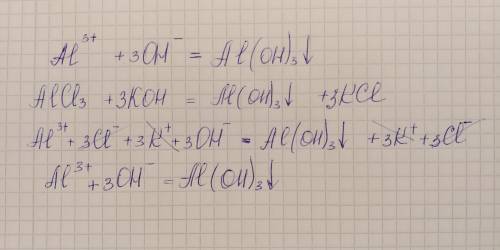 Al³⁺ + 3OH⁻ = Al(OH)₃↓
AlCl₃ + 3KOH = Al(OH)₃↓ + 3KCl
Al³⁺ + 3Cl⁻ + 3K⁺ + 3OH⁻ = Al(OH)₃↓ + 3K⁺ + 3Cl⁻
Al³⁺ + 3OH⁻ = Al(OH)₃↓